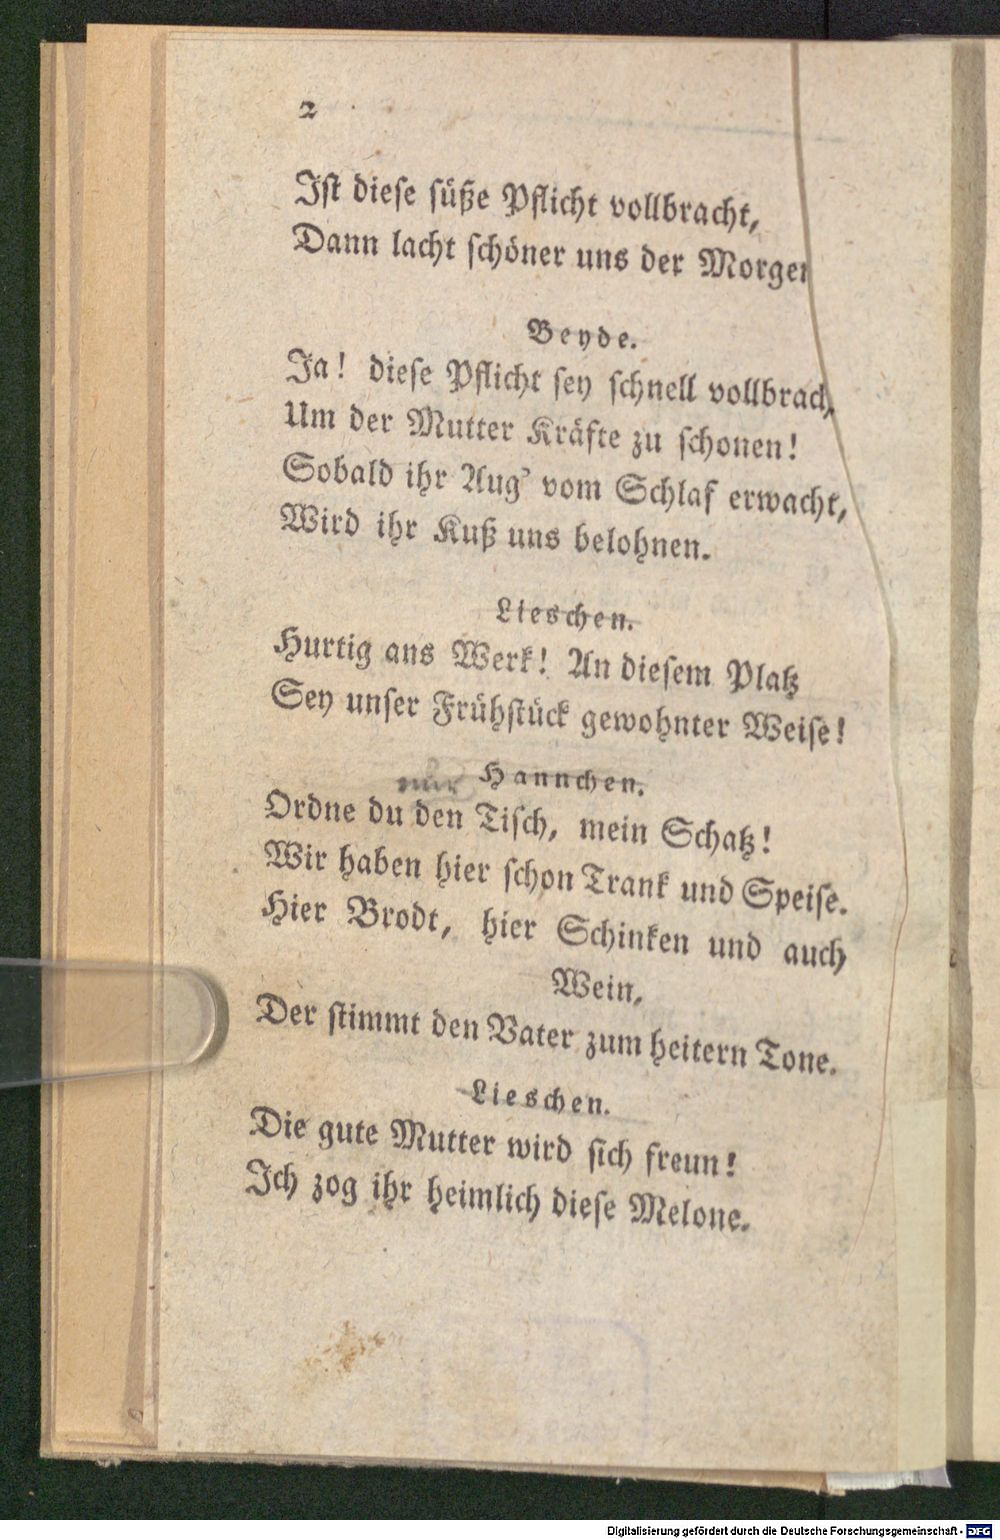 2
Ist diese süße Pflicht vollbracht,
Dann lacht schöner uns der Morgen
Beyde.
Ja! diese Pflicht sey schnell vollbrach
Um der Mutter Kräfte zu schonen!
Sobald ihr Aug' vom Schlaf erwacht,
Wird ihr Kuß uns belohnen.
Lieschen.
Hurtig ans Werk! An diesem Platz
Sey unser Frühstück gewohnter Weise!
nur Hannchen.
Ordne du den Tisch, mein Schatz!
Wir haben hier schon Trank und Speise.
Hier Brodt, hier Schinken und auch
Wein,
Der stimmt den Vater zum heitern Tone.
Lieschen.
Die gute Mutter wird sich freun!
Ich zog ihr heimlich diese Melone.
Digitalisierung gefördert durch die Deutsche Forschungsgemeinschaft - DFG